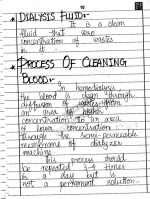 10
* DIALYSIS FLUID:-
It is a clean
fluid that zero
concentration of wastes
in it -
* PROCESS OF CLEANING
BLOOD:-
In hemodialysis
the blood is clean through
diffusion of wastes from
an area of higher
concentration to an area
of lower concentration
through the semi-permeable
membrane of dialyzer
machine.
This process should
be repeated 3-4 times
in a day but is
not a permanent solution.